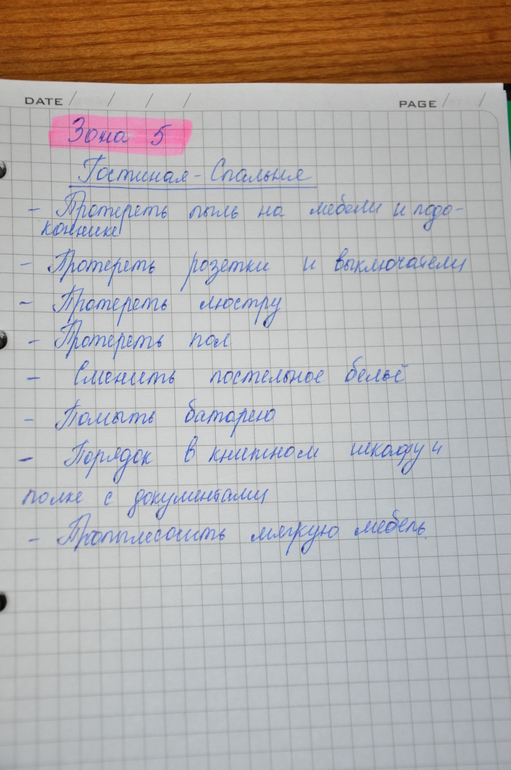 DATE / / / /
PAGE / /
Зона 5
Гостиная - Спальня
- Протереть пыль на мебели и подо-
коннике
- Протереть розетки и выключатели
- Протереть люстру
- Протереть пол
- Сменить постельное бельё
- Помыть батарею
- Порядок в книжном шкафу и
полке с документами
- Пропылесосить мягкую мебель